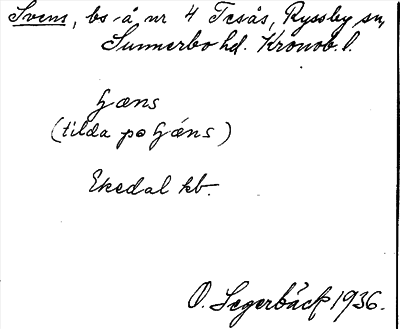 Svens, bs-å nr 4 Tesås, Ryssby sn,
Sunnerbo hd. Kronob. l.
gæns
(tilda po gæns)
Ekedal kb.
O. Segerbäck 1936.